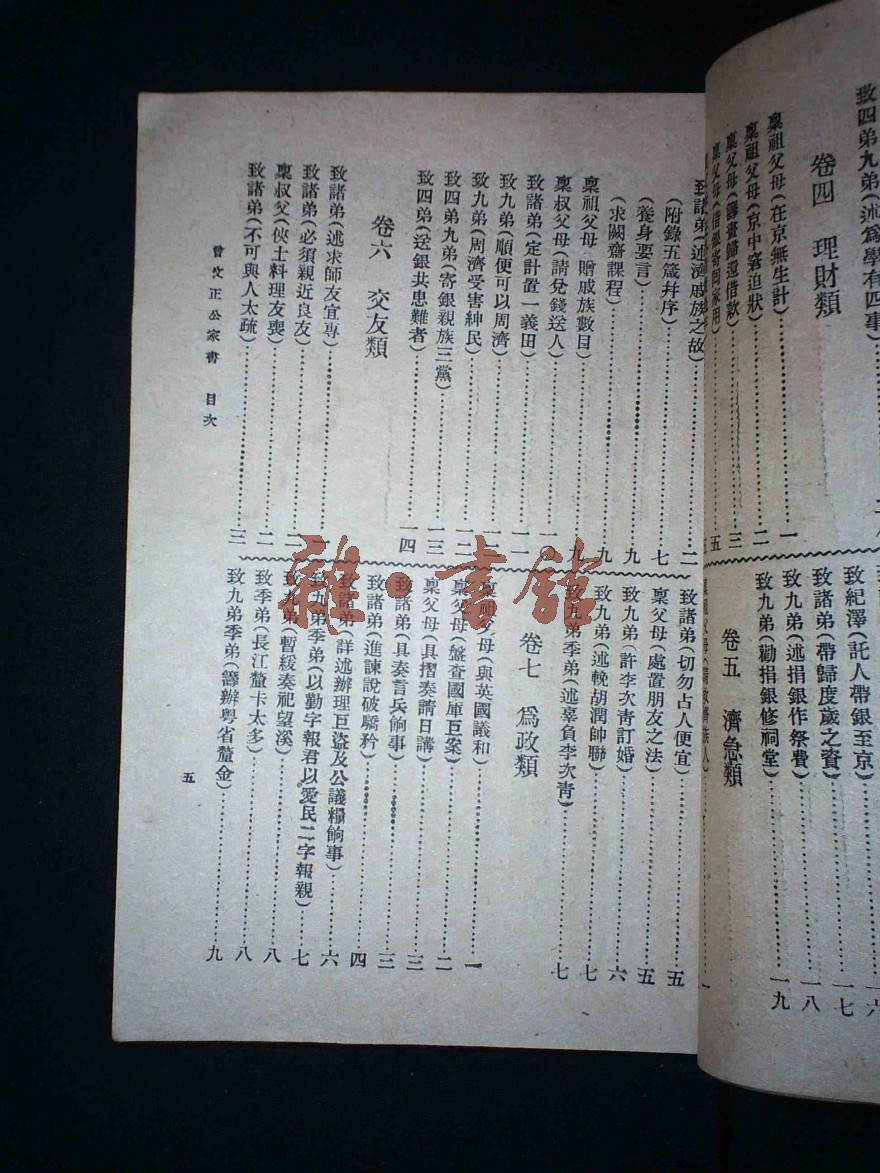 致四弟九弟(述爲學有四事)
卷四 理財類
稟祖父母(在京無生計)⋯⋯一
稟祖父母(京中窘迫狀)⋯⋯二
稟父母(籌畫歸還借款)⋯⋯三
稟父母(借銀寄回家用)⋯⋯五
致紀澤(託人帶銀至京)⋯⋯一六
致諸弟(帶歸度歲之資)⋯⋯一七
致九弟(述捐銀作祭費)⋯⋯一八
致九弟(勸捐銀修祠堂)⋯⋯一九
卷五 濟急類
稟祖父母(請救濟族人)⋯⋯一
致諸弟(述濟戚族之故)⋯⋯二
(附錄五箴幷序)⋯⋯七
(養身要言)⋯⋯九
(求闕齋課程)⋯⋯九
稟祖父母(贈戚族數目)⋯⋯九
稟叔父母(請兌錢送人)⋯⋯
致諸弟(定計置一義田)⋯⋯一一
致九弟(順便可以周濟)⋯⋯一二
致九弟(周濟受害紳民)⋯⋯一二
致四弟九弟(寄銀親族三黨)⋯⋯一三
致四弟(送銀共患難者)⋯⋯一四
卷六 交友類
致諸弟(述求師友宜專)⋯⋯一
致諸弟(必須親近良友)⋯⋯二
稟叔父(俠士料理友喪)⋯⋯二
致諸弟(不可與人太疏)⋯⋯三
致諸弟(切勿占人便宜)⋯⋯五
稟父母(處置朋友之法)⋯⋯五
致九弟(許李次靑訂婚)⋯⋯六
致九弟(述輓胡潤帥聯)⋯⋯七
致九弟季弟(述辜負李次靑)⋯⋯七
卷七 爲政類
稟祖父母(與英國議和)⋯⋯一
稟父母(盤查國庫巨案)⋯⋯二
稟父母(具摺奏請日講)⋯⋯三
致諸弟(具奏言兵餉事)⋯⋯三
致諸弟(進諫說破驕矜)⋯⋯四
致諸弟(詳述辦理巨盜及公議糧餉事)⋯⋯六
致九弟季弟(以勤字報君以愛民二字報親)⋯⋯七
致九弟(暫緩奏祀望溪)⋯⋯八
致季弟(長江釐卡太多)⋯⋯八
致九弟季弟(籌辦粤省釐金)⋯⋯九
曾文正公家書 目次
五
雜·書館